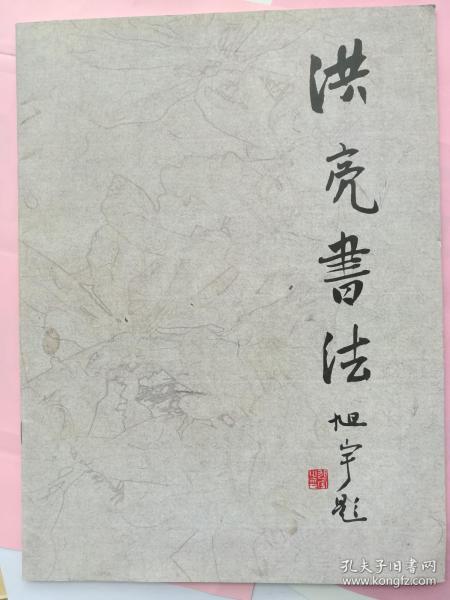 洪亮書法
旭宇題
孔夫子旧書网
www.kongfz.com